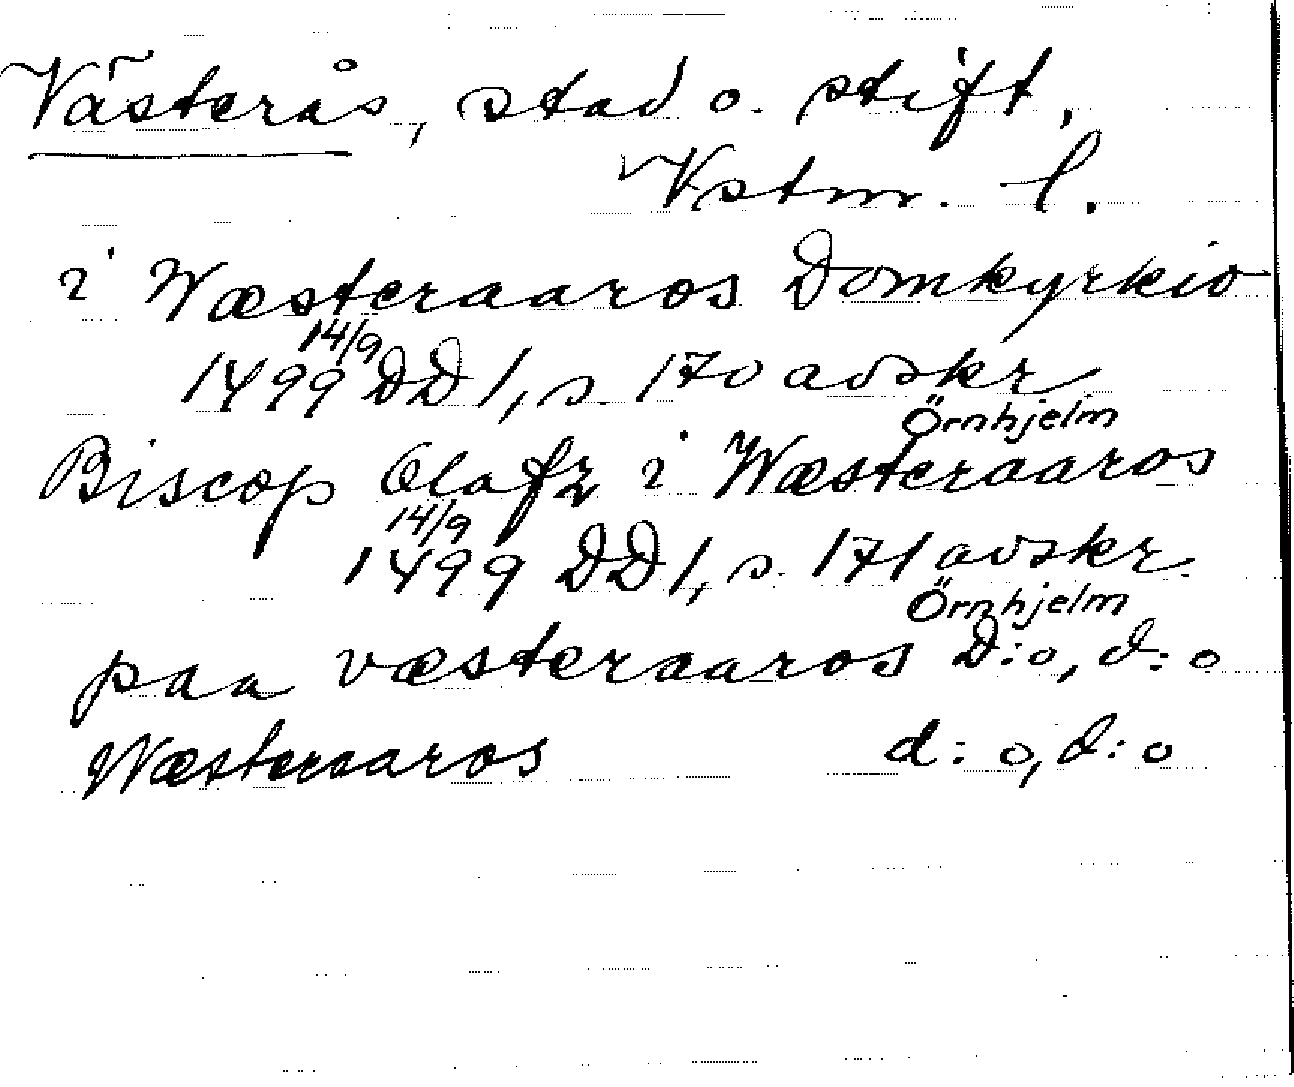 Västerås, stad o. stift,
Vstm. l.
i Wæsteraaros Domkyrkio
14/9
1499 DD 1, s. 170 avskr
Örnhjelm
Biscop Olafz i Wæsteraaros
14/9
1499 DD 1, s. 171 avskr.
Örnhjelm
paa væsteraaros D:o, d:o
Wæsteraaros d:o, d:o